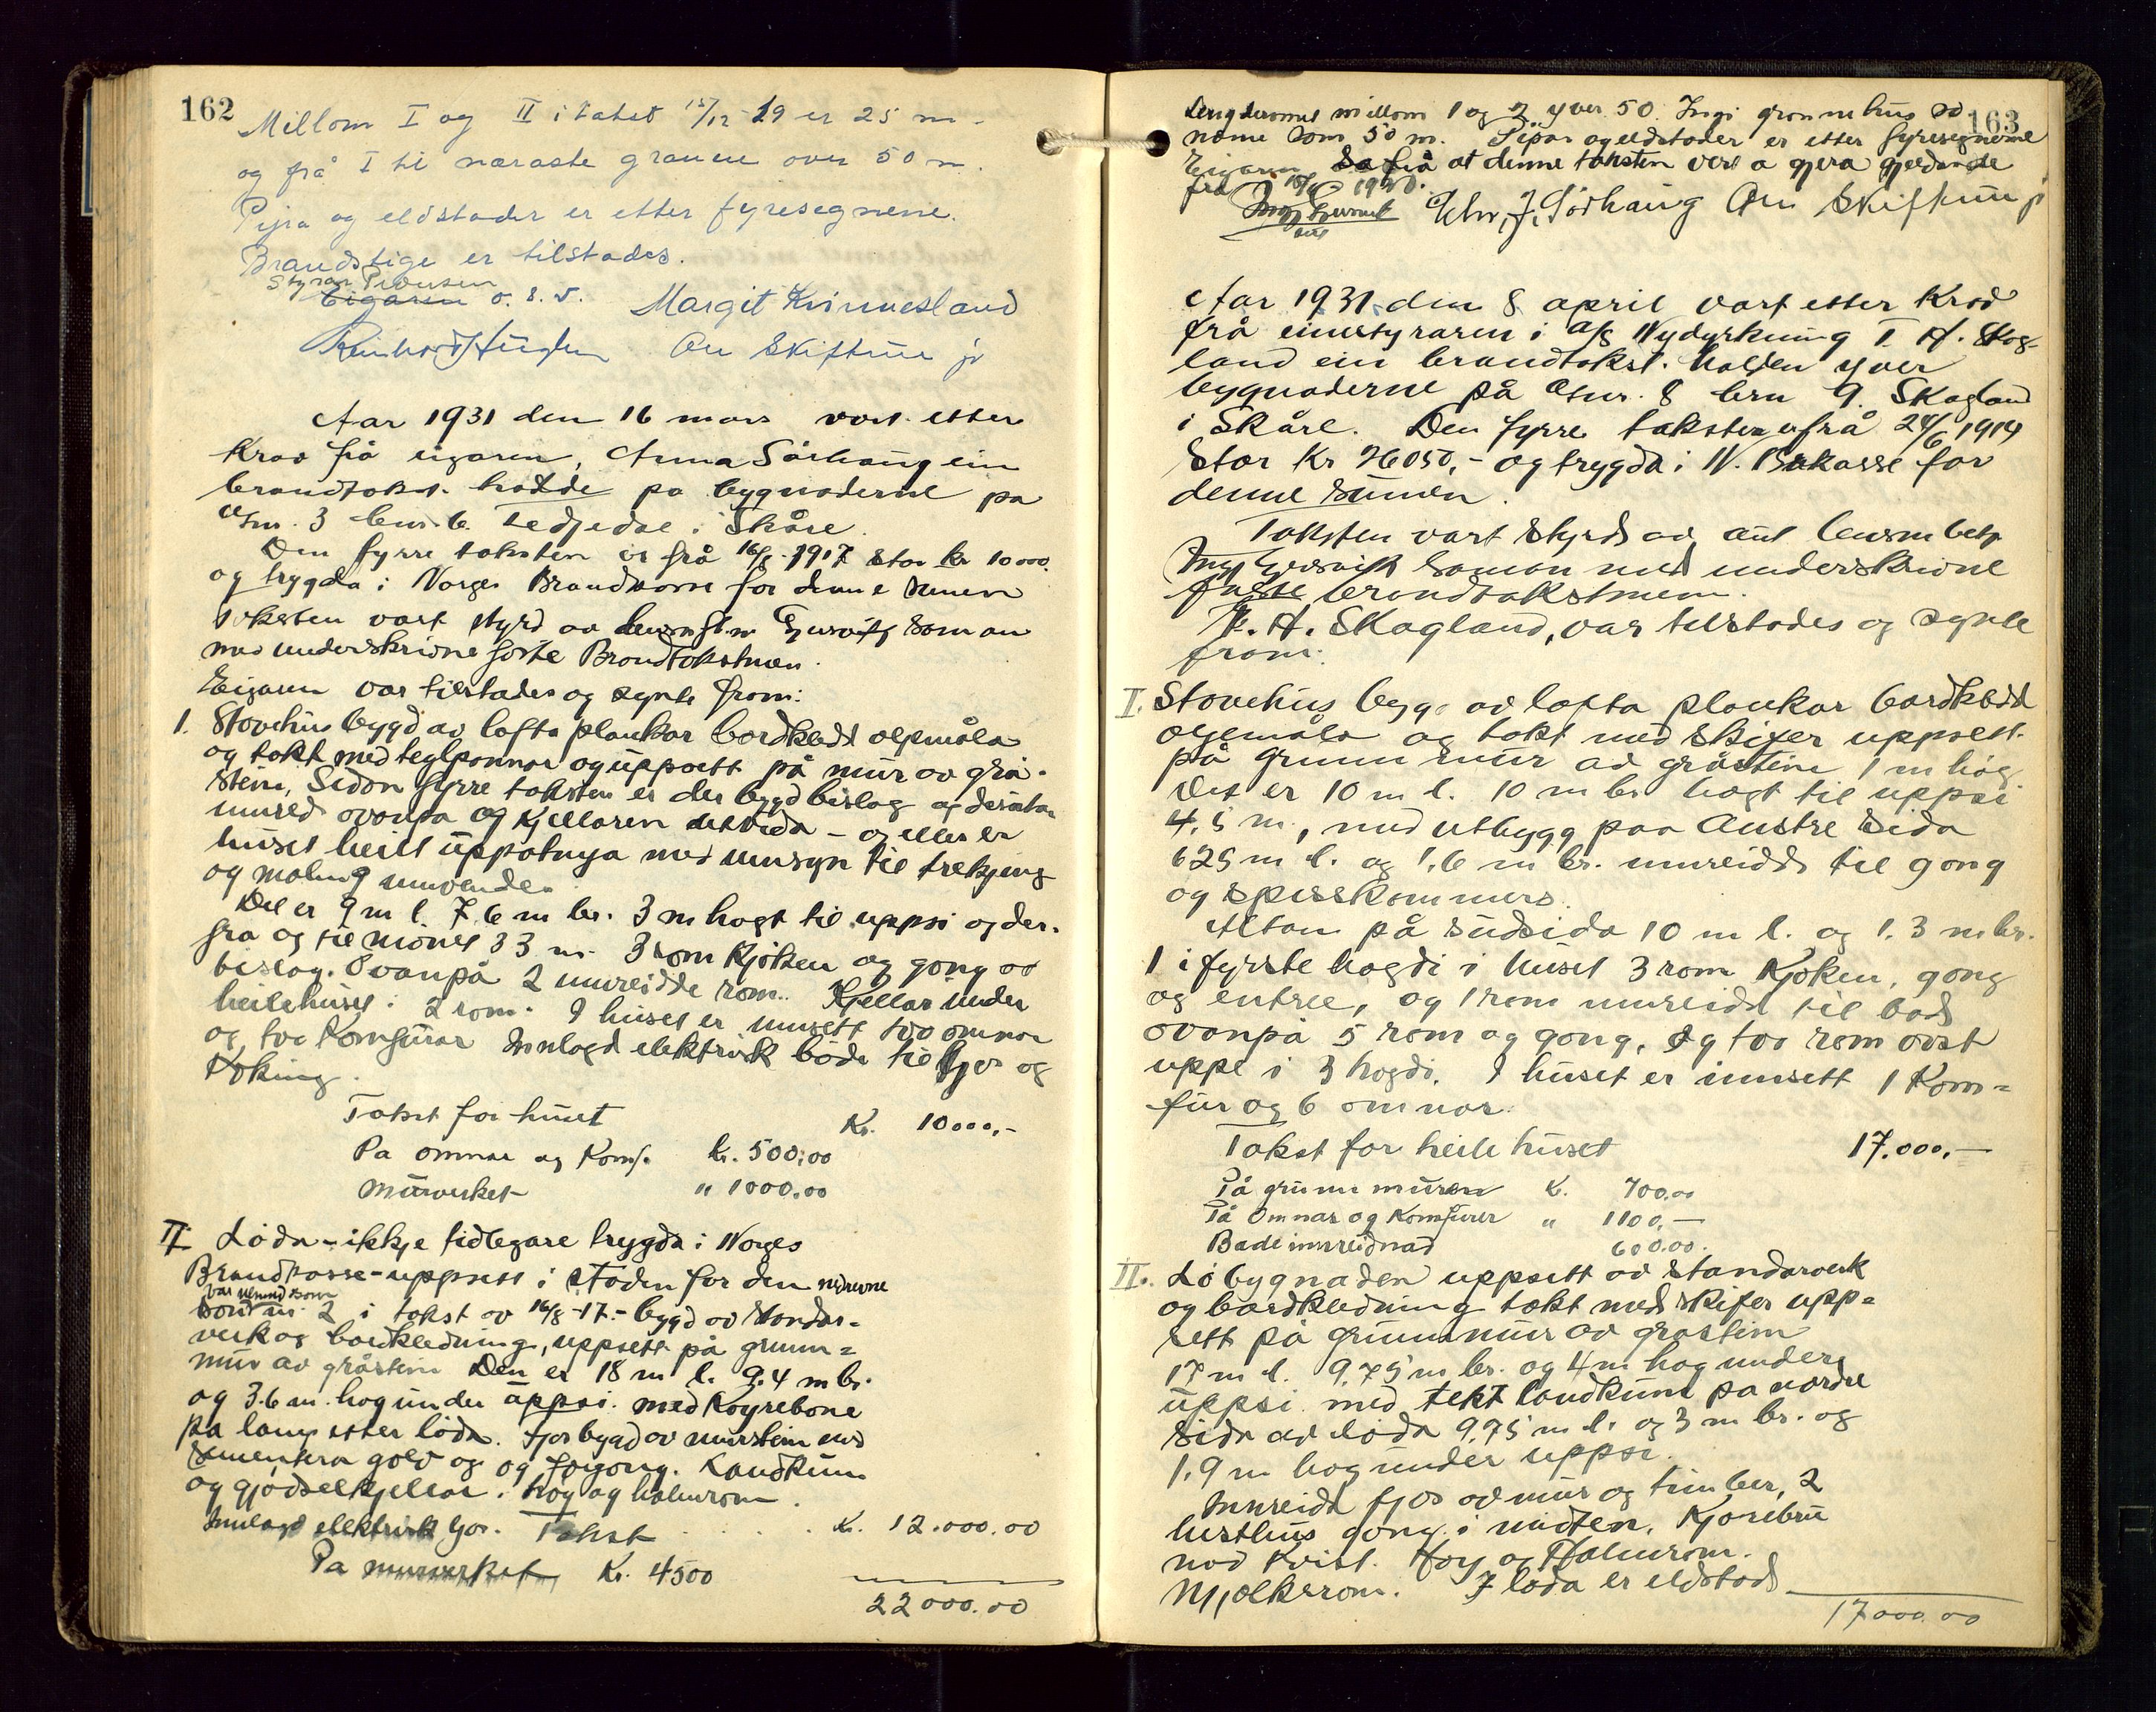 162
Millom I og II i takst 15/12-29 er 25 m.
og frå I til næraste granne over 50 m.
Pipa og eldstader er etter fyresegnene.
Brandstige er tilstades.
Styrar Pedersen
Eigaren o. s. v. Margit Kvinnesland
Ole Skiftun jr
Aar 1931 den 16 mars vart etter
Krav frå eigaren, Anna Sörhaug ein
brandtakst. hadde på bygnaderne på
Gnr. 3 bnr. 6 i Skåre.
Den fyrre taksten er frå 16/8-1917 stor kr 10000.
og trygda i Norges Brandkasse for denne sumen
Taksten vart styrd av saman
med underskrivne faste Brandtakstmen.
Eigaren var tilstades og synte fram:
1. Stovehus bygd av lafta plankar bordkledt oljemåla
og takt med teglpannor og uppsett på mur av grå-
stein, Sidan fyrre taksten er der bygd bislag og
innred ovanpå og Kjellaren utvida - og elles er
huset heilt uppatnya med umsyn til trekjing
og maling innvendes
Det er 9 m l. 7.6 m br. 3 m hogt til uppsi og der-
fra og til mönet 33 m. 3 rom Kjöken og gong av
bislag. Ovanpå 2 innreidde rom. Kjellar under
heile huset i 2 rom. I huset er innsett tvo omnar
og tvo Komfurar Innlagd elektrisk både til ljos og
Koking.
Takst for huset Kr. 10000,-
På omnar og Komf. kr. 500,00
Murverket " 1000.00
II Löda - ikkje tidlegare trygda i Norges
Brandkasse - uppsett i staden for den nedrevne
var nemnd som
nr. 2 i takst av 16/8-17. - bygd av standar-
verk og bordkledning, uppsett på grunn=
mur av gråstein Den er 18 m l. 9.4 m br.
og 3.6 m. hog under uppsi. med Köyrebone
på lang etter löda. fjos bygd av murstein med
sementera golv og og fjosgong. Landkum
og gjödselkjellar. höy og halmrom.
Innlagd elektrisk ljos. Takst . . . . Kr. 12.000.00
På murverket Kr. 4500
22000.00
163
Lengderomet millom 1 og 2 yver 50. Ingi grannehus so
nome som 50 m. Pipar og eldstader er etter fyresegnerne
Eigaren at denne taksten vert å gjera gjeldande
frå 15/4 1930.
Chr. J. Sörhaug Ole Skiftun jr
Aar 1931 den 8 april vart etter Krav
frå einestyraren i A/S Nydyrkning T. H. Skog-
land ein brandtakst. halden yver
bygnaderne på Gnr. 8 bru 9. Skogland
i Skåre. Den fyrre taksten er frå 24/6 1914
Stor Kr 26050,- og trygda i N. Br.kasse for
denne sumen.
Taksten vart styrd av aut lensm betj
saman med underskrivne
faste brandtakstmenn.
T. H. Skogland, var tilstades og synte
fram:
I. Stovehus bygd av lafta plankar bordkledd
oljemåla og takt med skifer uppsett
på grunnmur av gråstein 1 m hög
Det er 10 m l. 10 m br hogt til uppsi
4,5 m, med utbygg paa Austre sida
625 m l. og 1.6 m br. innreidd til gong
og spisskammers.
Altan på sudsida 10 m l. og 1.3 m br.
I i fyrste hogdi i huset 3 rom Kjöken, gong
og entree, og 1 rom innreidd til bad
ovanpå 5 rom og gong, og tvo rom ovst
uppe i 3 hogdi. I huset er innsett 1 Kom=
fur og 6 omnar.
Takst for heile huset 17.000,-
På grunnmuren Kr. 700,00
På Omnar og Komfurer " 1100,-
Badeinnreidnad 600.00.
II. Löbygnaden uppsett av standarverk
og bordkledning takt med skifer upp=
sett på grunnmur av gråstein
17 m l. 9.75 m br. og 4 m hog under
uppsi med tekt landkum på nordre
Sida av löda 9.75 m l. og 3 m br. og
1.9 m hog under uppsi.
Innreidd fjos av mur og timber, 2
hesthus gong i midten. Kjörebru
med kvist. Höy og Halmrom.
Mjölkerom. I löda er eldstad
17000.00